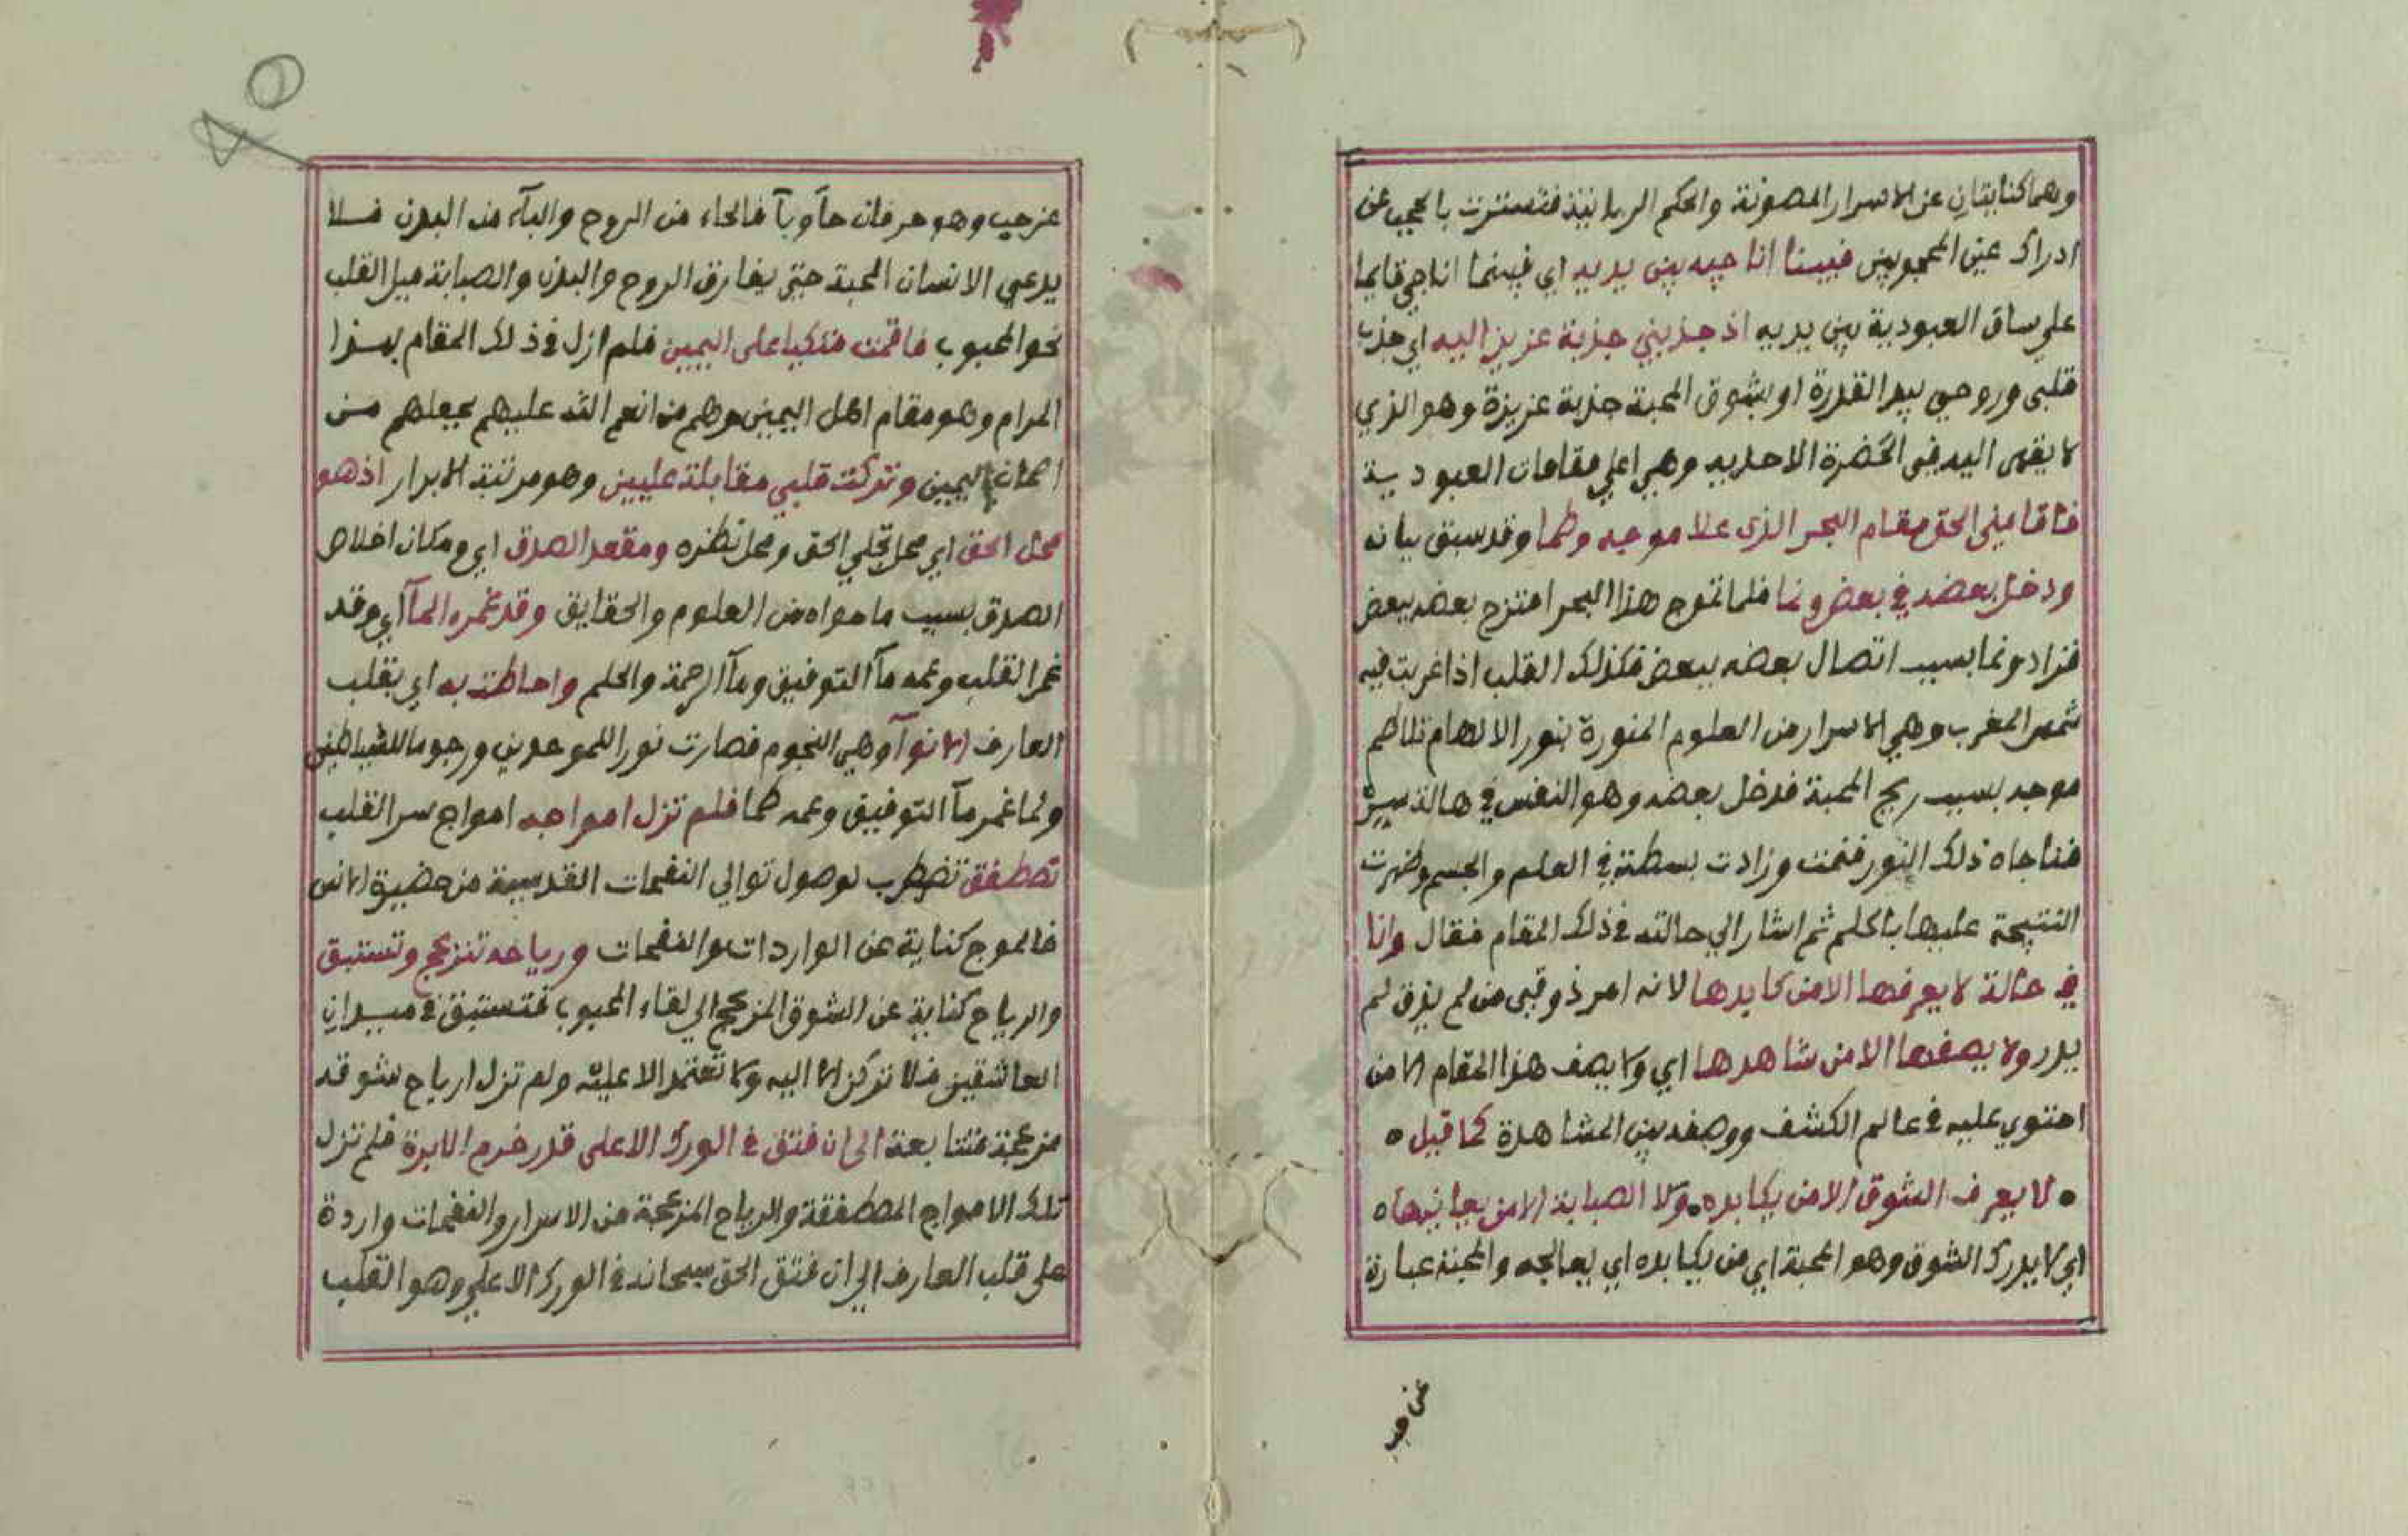 وهما كنايتان عن الاسرار المصونة والحكم الربانية فتسترت بالحجب عن
ادراك عين المحجوبين فبينا انا جيه بين يديه اي فبينما اناجي قايما
على ساق العبودية بين يديه اذ جذبني جذبة عزيز اليه اي جذب
قلبي وروحي بيد القدرة او بشوق المحبة جذبة عزيزة وهو الذي
لا يقهر اليه في الحضرة الاحديه وهي اعلي مقامات العبودية
فاقامني الحق مقام البحر الذي علا موجه وطما وقد سبق بيانه
ودخل بعضه في بعض ونما فلما تموج هذا البحر امتزج بعضه ببعض
فزاد ونما بسبب اتصال بعضه ببعض فكذلك القلب اذا غربت فيه
شمس المغرب وهي الاسرار من العلوم المنورة بنور الالهام تلاطم
موجه بسبب ريح المحبة فدخل بعضه وهو النفس في هالة سر
فناجاه ذلك النور فنمت وزادت بسطة في العلم والجسم وظهرت
النتيجة عليها بالحلم ثم اشار الي حالته في ذلك المقام فقال وانا
في حالة لا يعرفها الا من كابدها لانه امر ذوقي من لم يذق لم
يدر ولا يصفها الا من شاهدها اي ولا يصف هذا المقام الا من
احتوي عليه في عالم الكشف ووصفه بين المشاهدة كما قيل ه
ه لا يعرف الشوق الا من يكابده ه ولا الصبابة الا من يعانيها ه
اي لا يدرك الشوق وهو المحبة اي من يكابده اي يعالجه والمحبة عبارة
عن حب
عن حب وهو حرفان حآ وبآ فالحاء من الروح والبآء من البدن فلا
يدعي الانسان المحبة حتى يفارق الروح والبدن والصبابة ميل القلب
نحو المحبوب فاقمت متكيا على اليمين فلم ازل في ذلك المقام بهذا
المرام وهو مقام اهل اليمين وهم من انعم الله عليهم بجعلهم من
اصحاب اليمين وتركت قلبي مقابلة عليين وهو مرتبة الابرار اذ هو
محل الحق اي محل تجلي الحق ومحل نظره ومقعد الصدق اي ومكان اخلاص
الصدق بسبب ما حواه من العلوم والحقايق وقد غمره المآ اي وقد
غمر القلب وعمه مآ التوفيق ومآ الرحمة والحلم واحاطت به اي بقلب
العارف الانوآ وهي النجوم فصارت نورا للموحدين ورجوما للشياطين
ولما غمر مآ التوفيق وعمه طما فلم تزل امواجه امواج سر القلب
تصطفق تضطرب لوصول توالي النفحات القدسية من حضيرة الانس
فالموج كناية عن الواردات والنفحات ورياحه تنزعج وتستبق
والرياح كناية عن الشوق المزعج الي لقاء المحبوب فتستبق في ميدان
العاشقين فلا تركن الا اليه ولا تعتمد الا عليه ولم تزل ارياح شوقه
مزعجة متتابعة الى ان فتق في الورك الاعلى قدر خرم الابرة فلم تزل
تلك الامواج المصطفقة والرياح المنزعجة من الاسرار والنفحات واردة
على قلب العارف الي ان فتق الحق سبحانه في الورك الاعلي وهو القلب